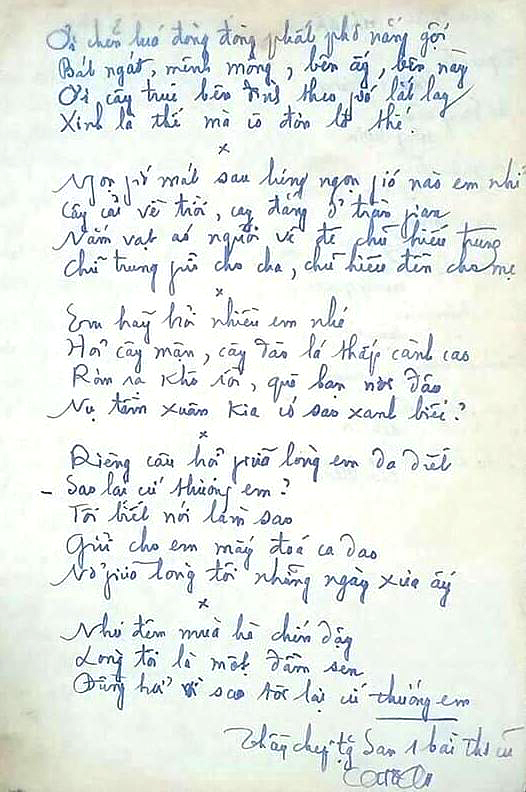 Ơi chẽn lúa đòng đòng phất phơ nắng gội
Bát ngát, mênh mông, bên ấy, bên này
Ơi cây trúc bên đình theo gió lắt lay
Xinh là thế mà cô đơn là thế.
x
Ngọn gió mát sau lưng ngọn gió nào em nhỉ
Cây cải về trời, cay đắng ở trần gian
Nắm vạt áo người về đề chữ hiếu trung
Chữ trung gửi cho cha, chữ hiếu đến cho mẹ
x
Em hãy hỏi nhiều em nhé
Hỏi cây mận, cây đào lá thấp cành cao
Rơm rạ khô rồi, quê bạn nơi đâu
Nụ tầm xuân kia có sao xanh biếc?
x
Riêng câu hỏi giữa lòng em da diết
- Sao lại cứ thương em?
Tôi biết nói làm sao
Gửi cho em mấy đoá ca dao
Nở giữa lòng tôi những ngày xưa ấy
x
Như đêm mưa hè chớm dậy
Lòng tôi là một đầm sen
Đừng hỏi vì sao tôi lại cứ thương em
Thầy chép tặng San 1 bài thơ cũ